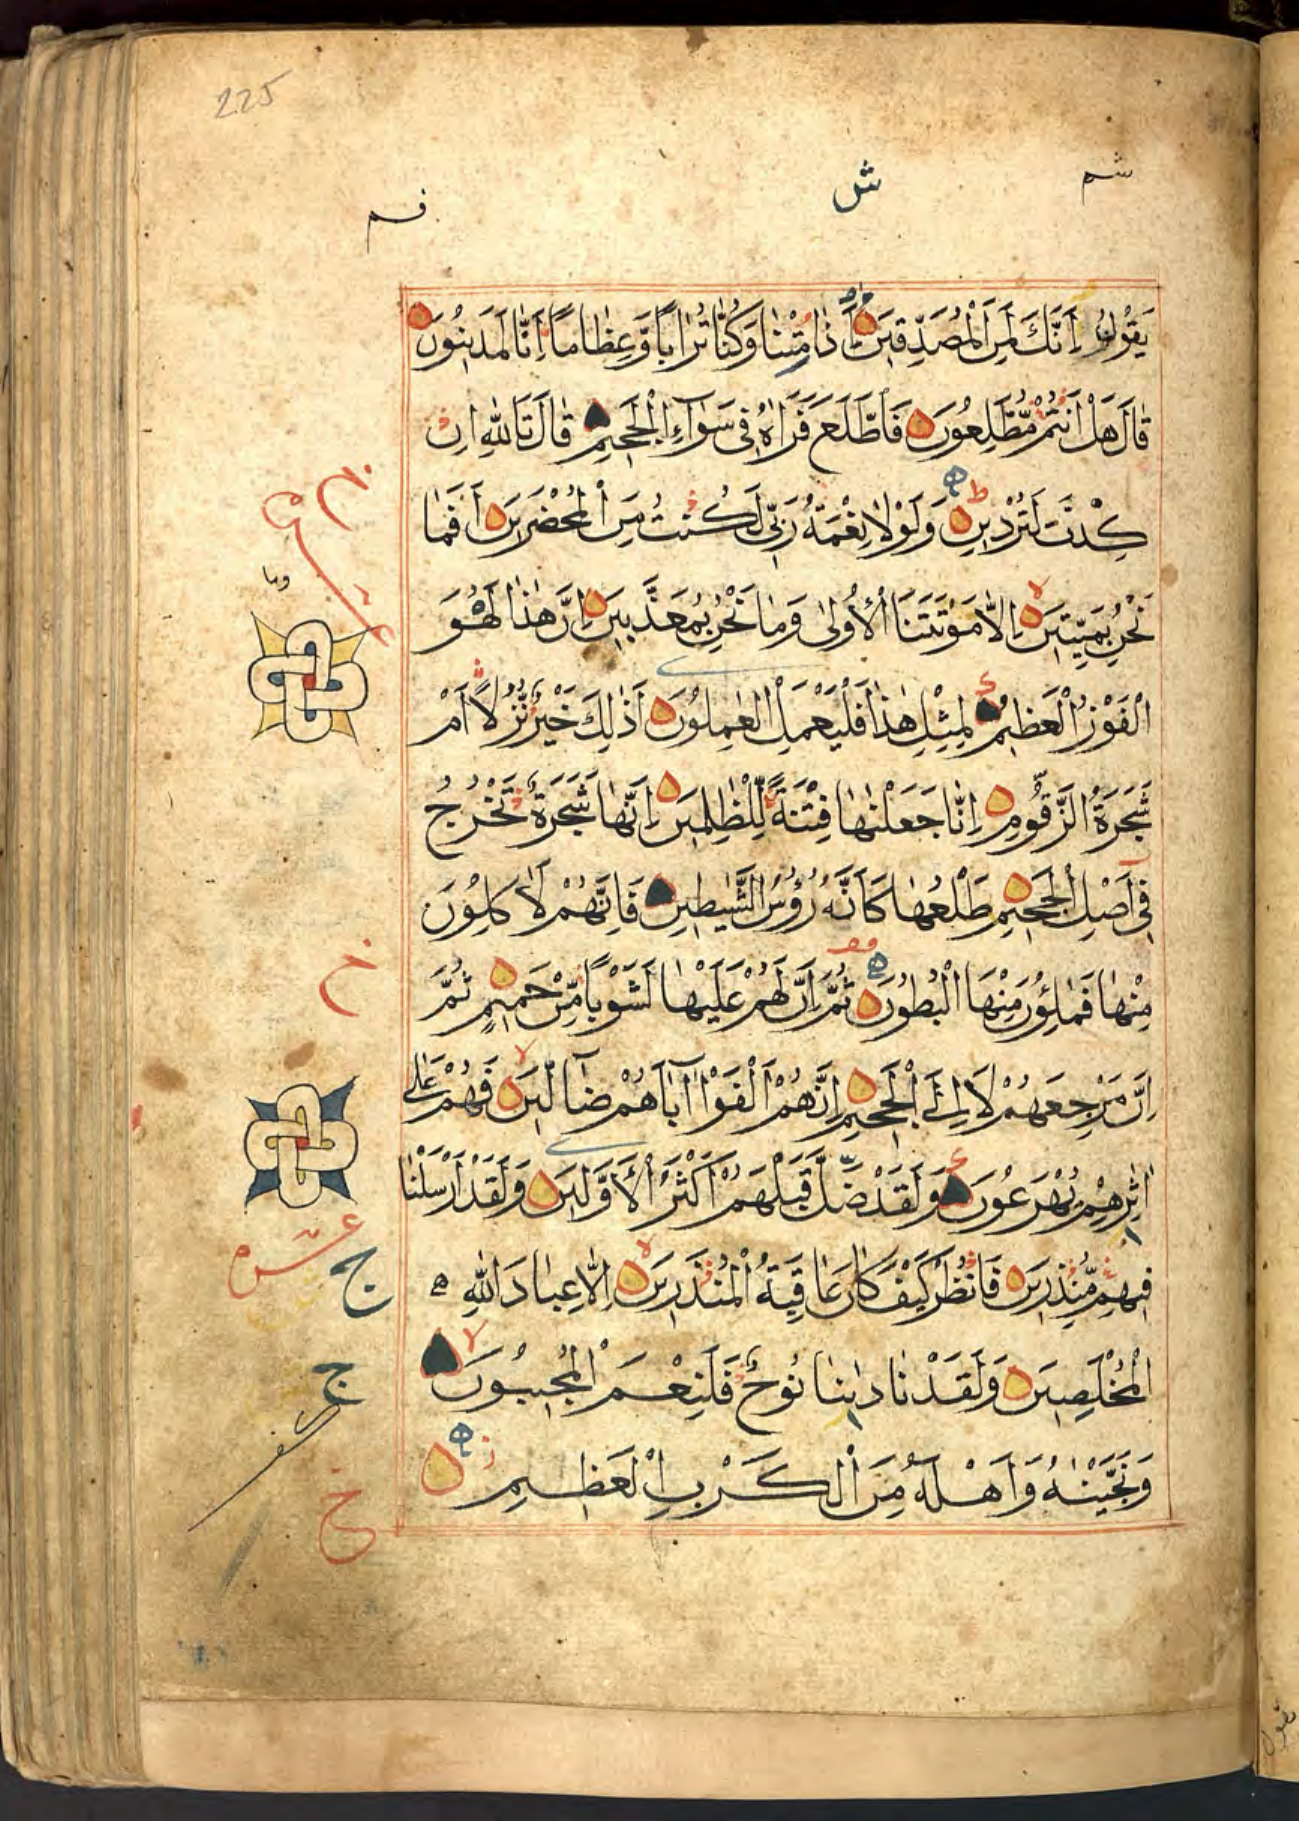 225
شم
ش
فم
يَقُولُ اَئِنَّكَ لَمِنَ الْمُصَدِّقِينَ ءَاِذَا مِتْنَا وَكُنَّا تُرَابًا وَعِظَامًا اَئِنَّا لَمَدِينُونَ
قَالَ هَلْ اَنْتُمْ مُطَّلِعُونَ فَاطَّلَعَ فَرَاٰهُ فِى سَوَآءِ الْجَحِيمِ قَالَ تَاللّٰهِ اِنْ
كِدْتَ لَتُرْدِينِ وَلَوْلَا نِعْمَةُ رَبِّى لَكُنْتُ مِنَ الْمُحْضَرِينَ اَفَمَا
نَحْنُ بِمَيِّتِينَ اِلَّا مَوْتَتَنَا الْاُولٰى وَمَا نَحْنُ بِمُعَذَّبِينَ اِنَّ هٰذَا لَهُوَ
الْفَوْزُ الْعَظِيمُ لِمِثْلِ هٰذَا فَلْيَعْمَلِ الْعٰمِلُونَ اَذٰلِكَ خَيْرٌ نُزُلًا اَمْ
شَجَرَةُ الزَّقُّومِ اِنَّا جَعَلْنٰهَا فِتْنَةً لِلظّٰلِمِينَ اِنَّهَا شَجَرَةٌ تَخْرُجُ
فِى اَصْلِ الْجَحِيمِ طَلْعُهَا كَاَنَّهُ رُؤُسُ الشَّيٰطِينِ فَاِنَّهُمْ لَاٰكِلُونَ
مِنْهَا فَمَالِؤُنَ مِنْهَا الْبُطُونَ ثُمَّ اِنَّ لَهُمْ عَلَيْهَا لَشَوْبًا مِنْ حَمِيمٍ ثُمَّ
اِنَّ مَرْجِعَهُمْ لَاِلَى الْجَحِيمِ اِنَّهُمْ اَلْفَوْا اٰبَآءَهُمْ ضَآلِّينَ فَهُمْ عَلٰى
اٰثٰرِهِمْ يُهْرَعُونَ وَلَقَدْ ضَلَّ قَبْلَهُمْ اَكْثَرُ الْاَوَّلِينَ وَلَقَدْ اَرْسَلْنَا
فِيهِمْ مُنْذِرِينَ فَانْظُرْ كَيْفَ كَانَ عَاقِبَةُ الْمُنْذَرِينَ اِلَّا عِبَادَ اللّٰهِ
الْمُخْلَصِينَ وَلَقَدْ نَادٰىنَا نُوحٌ فَلَنِعْمَ الْمُجِيبُونَ
وَنَجَّيْنٰهُ وَاَهْلَهُ مِنَ الْكَرْبِ الْعَظِيمِ